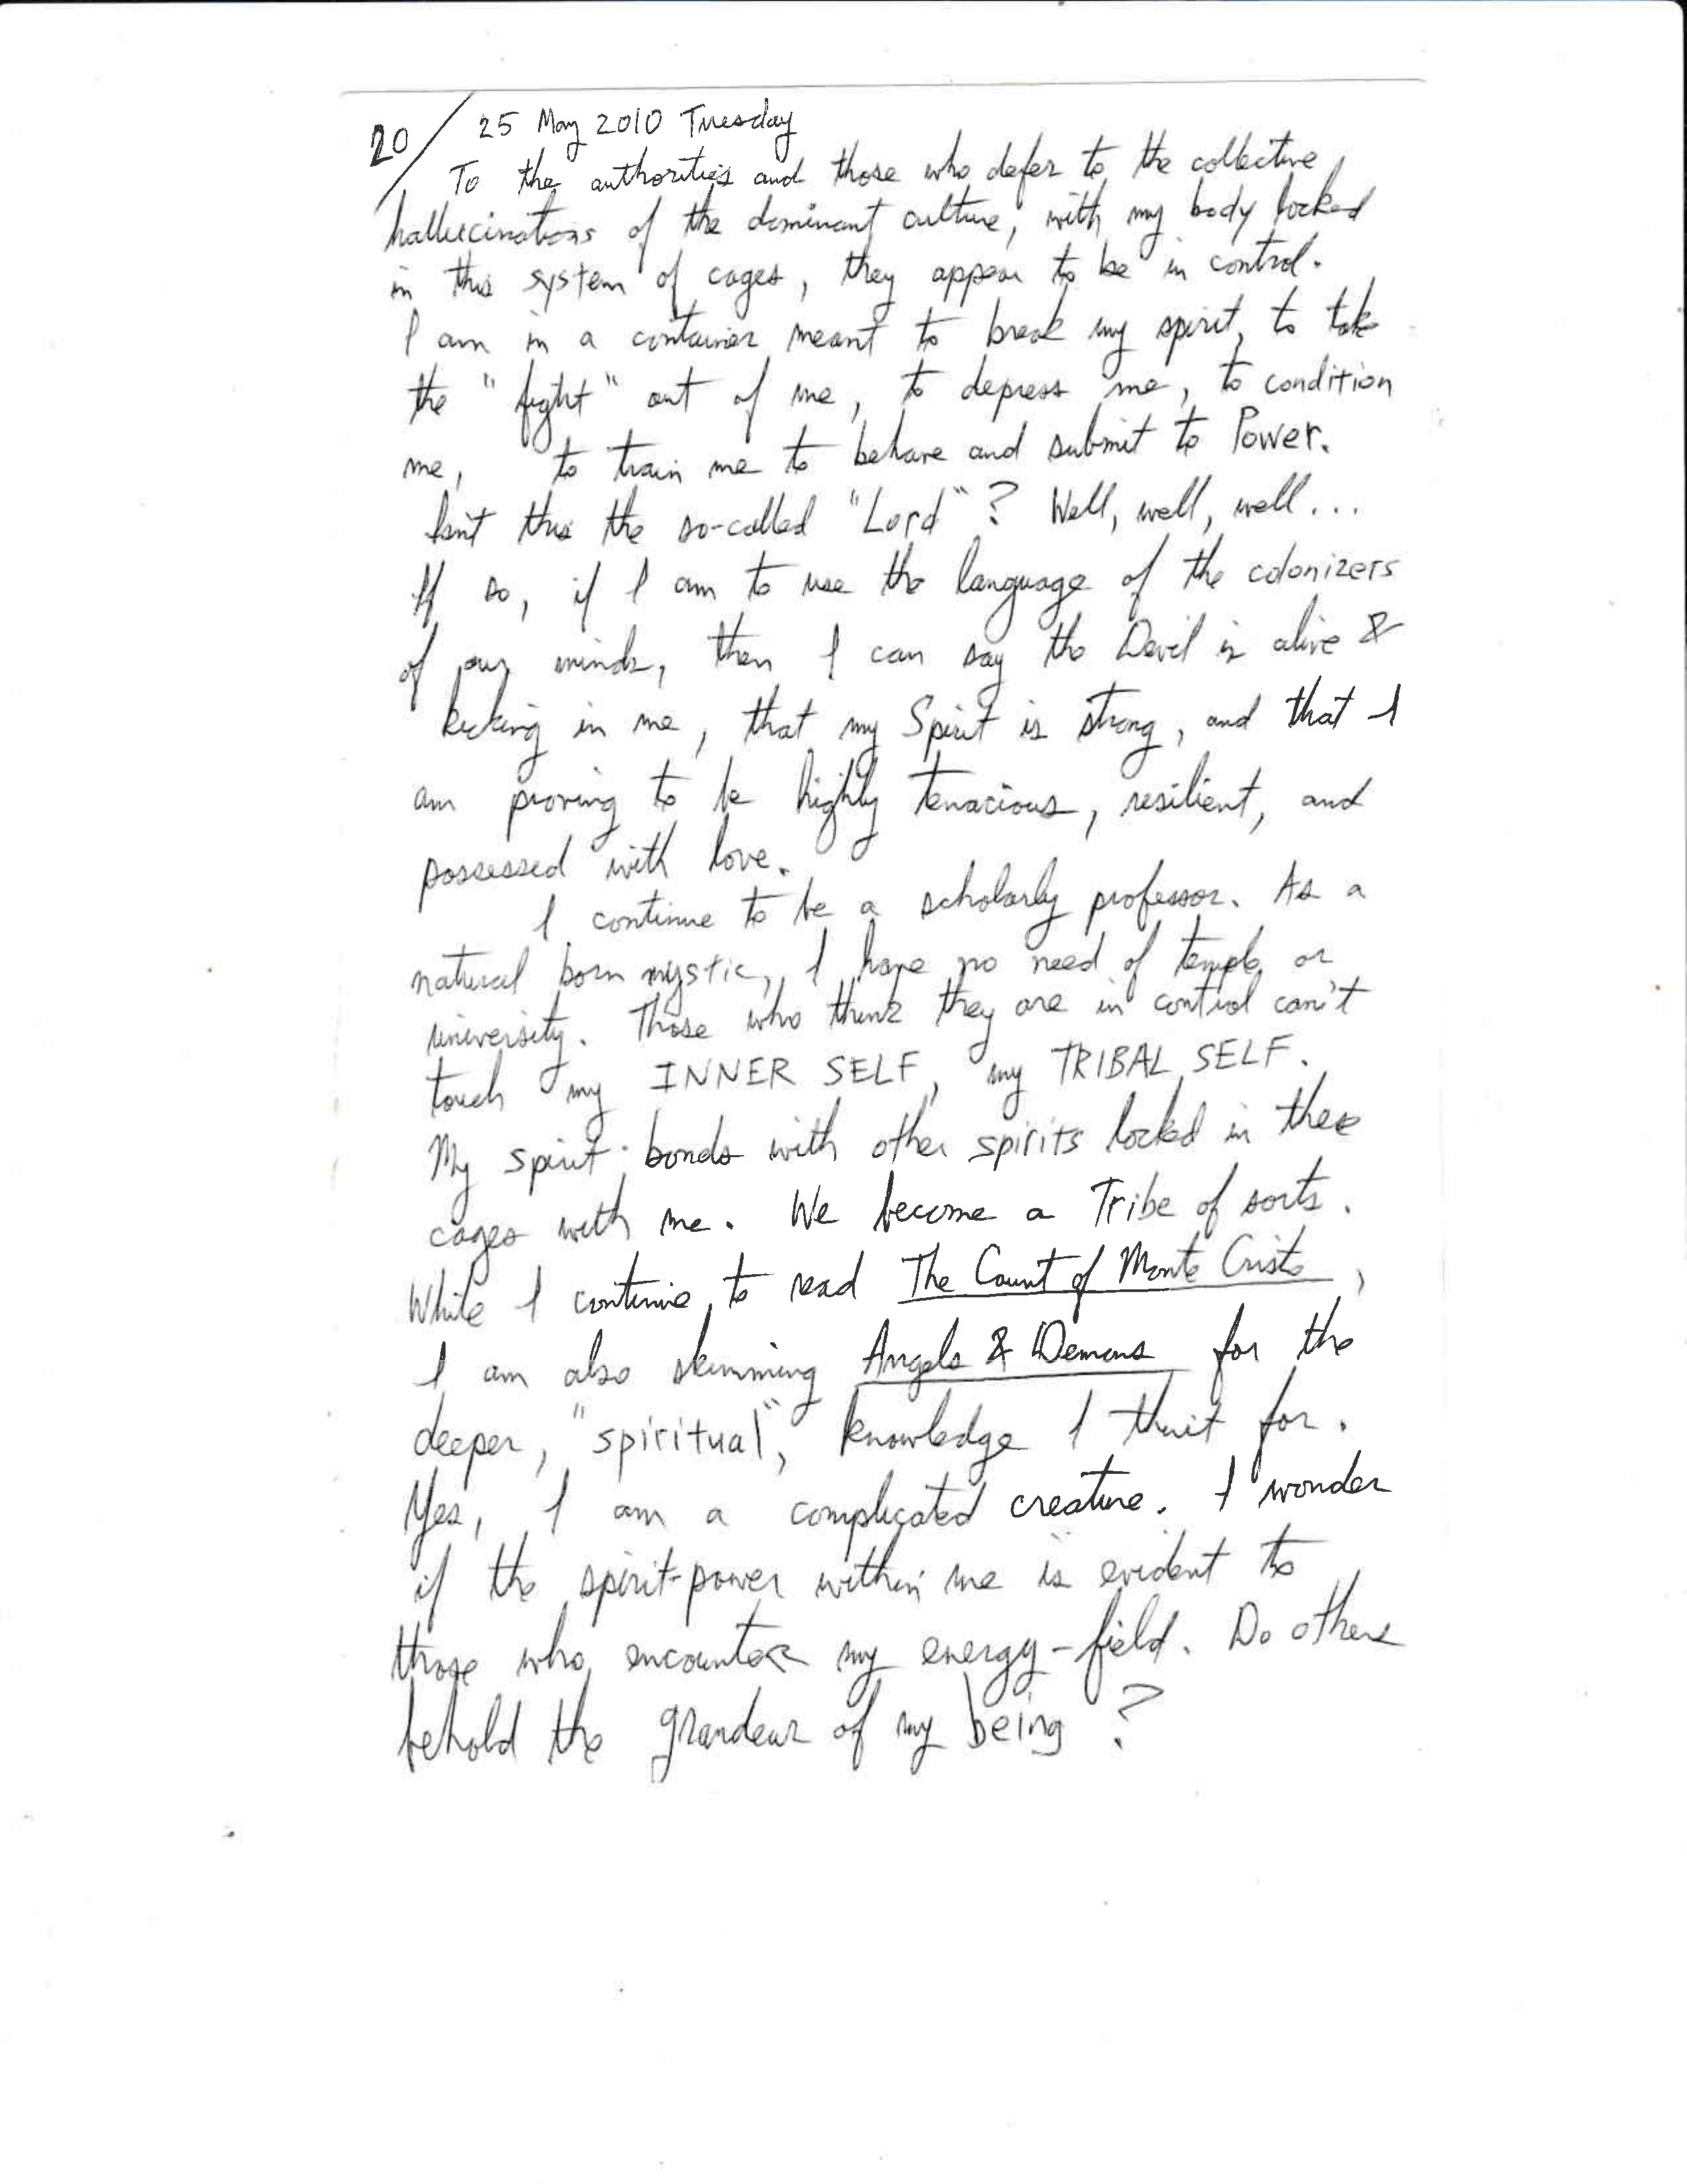 20/ 25 May 2010 Tuesday
To the authorities and those who defer to the collective
hallucinations of the dominant culture, with my body locked
in this system of cages, they appear to be in control.
I am in a container meant to break my spirit, to take
the "fight" out of me, to depress me, to condition
me, to train me to behave and submit to Power.
Isn't this the so-called "Lord"? Well, well, well...
If so, if I am to use the language of the colonizers
of our minds, then I can say the Devil is alive &
kicking in me, that my Spirit is strong, and that I
am proving to be highly tenacious, resilient, and
possessed with love.
I continue to be a scholarly professor. As a
natural born mystic, I have no need of temple or
university. Those who think they are in control can't
touch my INNER SELF, my TRIBAL SELF.
My spirit bonds with other spirits locked in these
cages with me. We become a Tribe of sorts.
While I continue to read The Count of Monte Cristo,
I am also skimming Angels & Demons for the
deeper, "spiritual", knowledge I thirst for.
Yes, I am a complicated creature. I wonder
if the spirit-power within me is evident to
those who encounter my energy-field. Do others
behold the grandeur of my being?